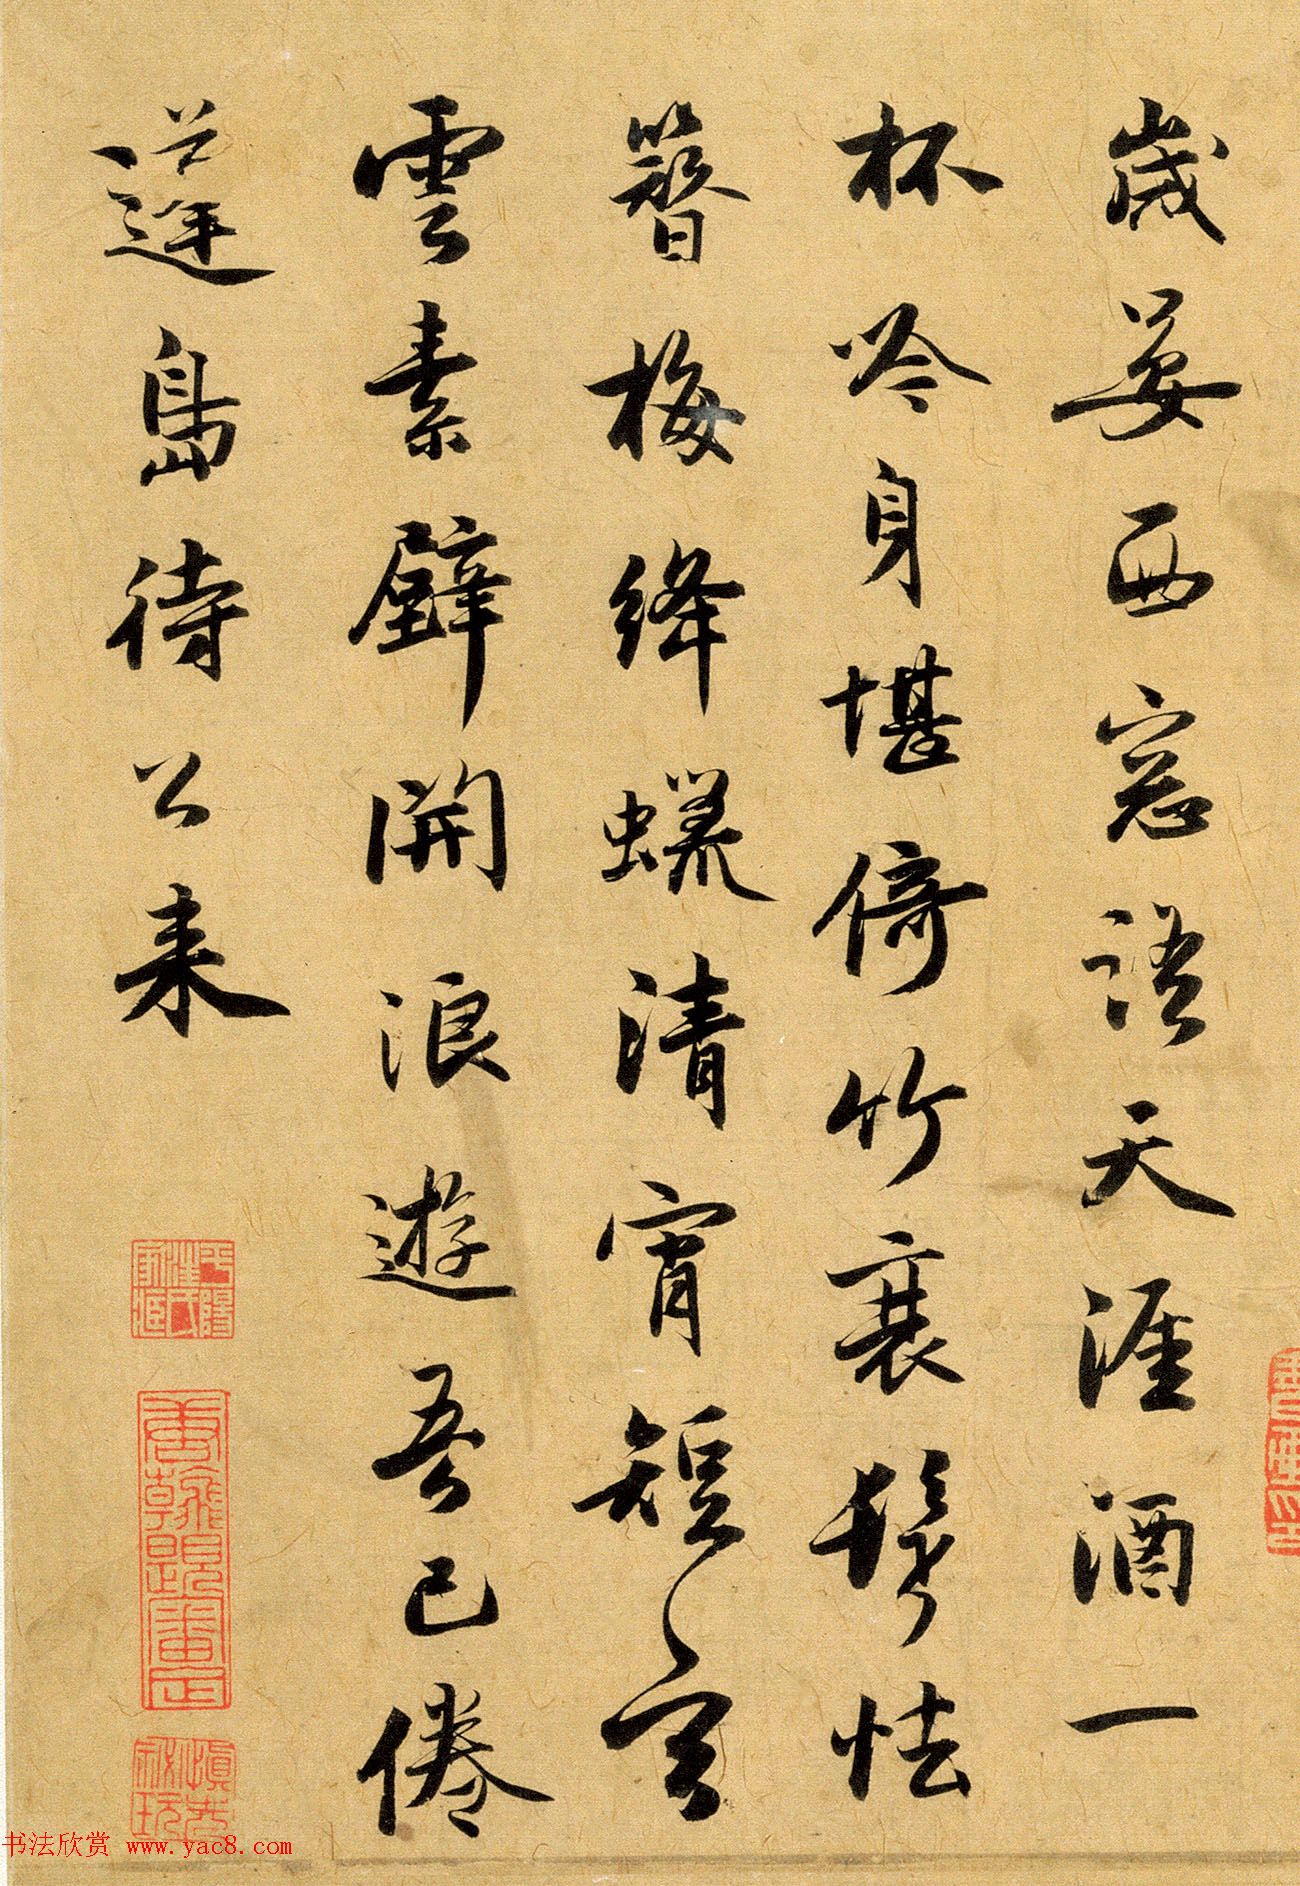 歲晏西窓語天涯酒一
杯冷身堪倚竹衰鬢怯
簪梅絳蠟清宵短玄
雲素壁開浪遊吾已倦
蓬島待公来
書法欣赏 www.yac8.com